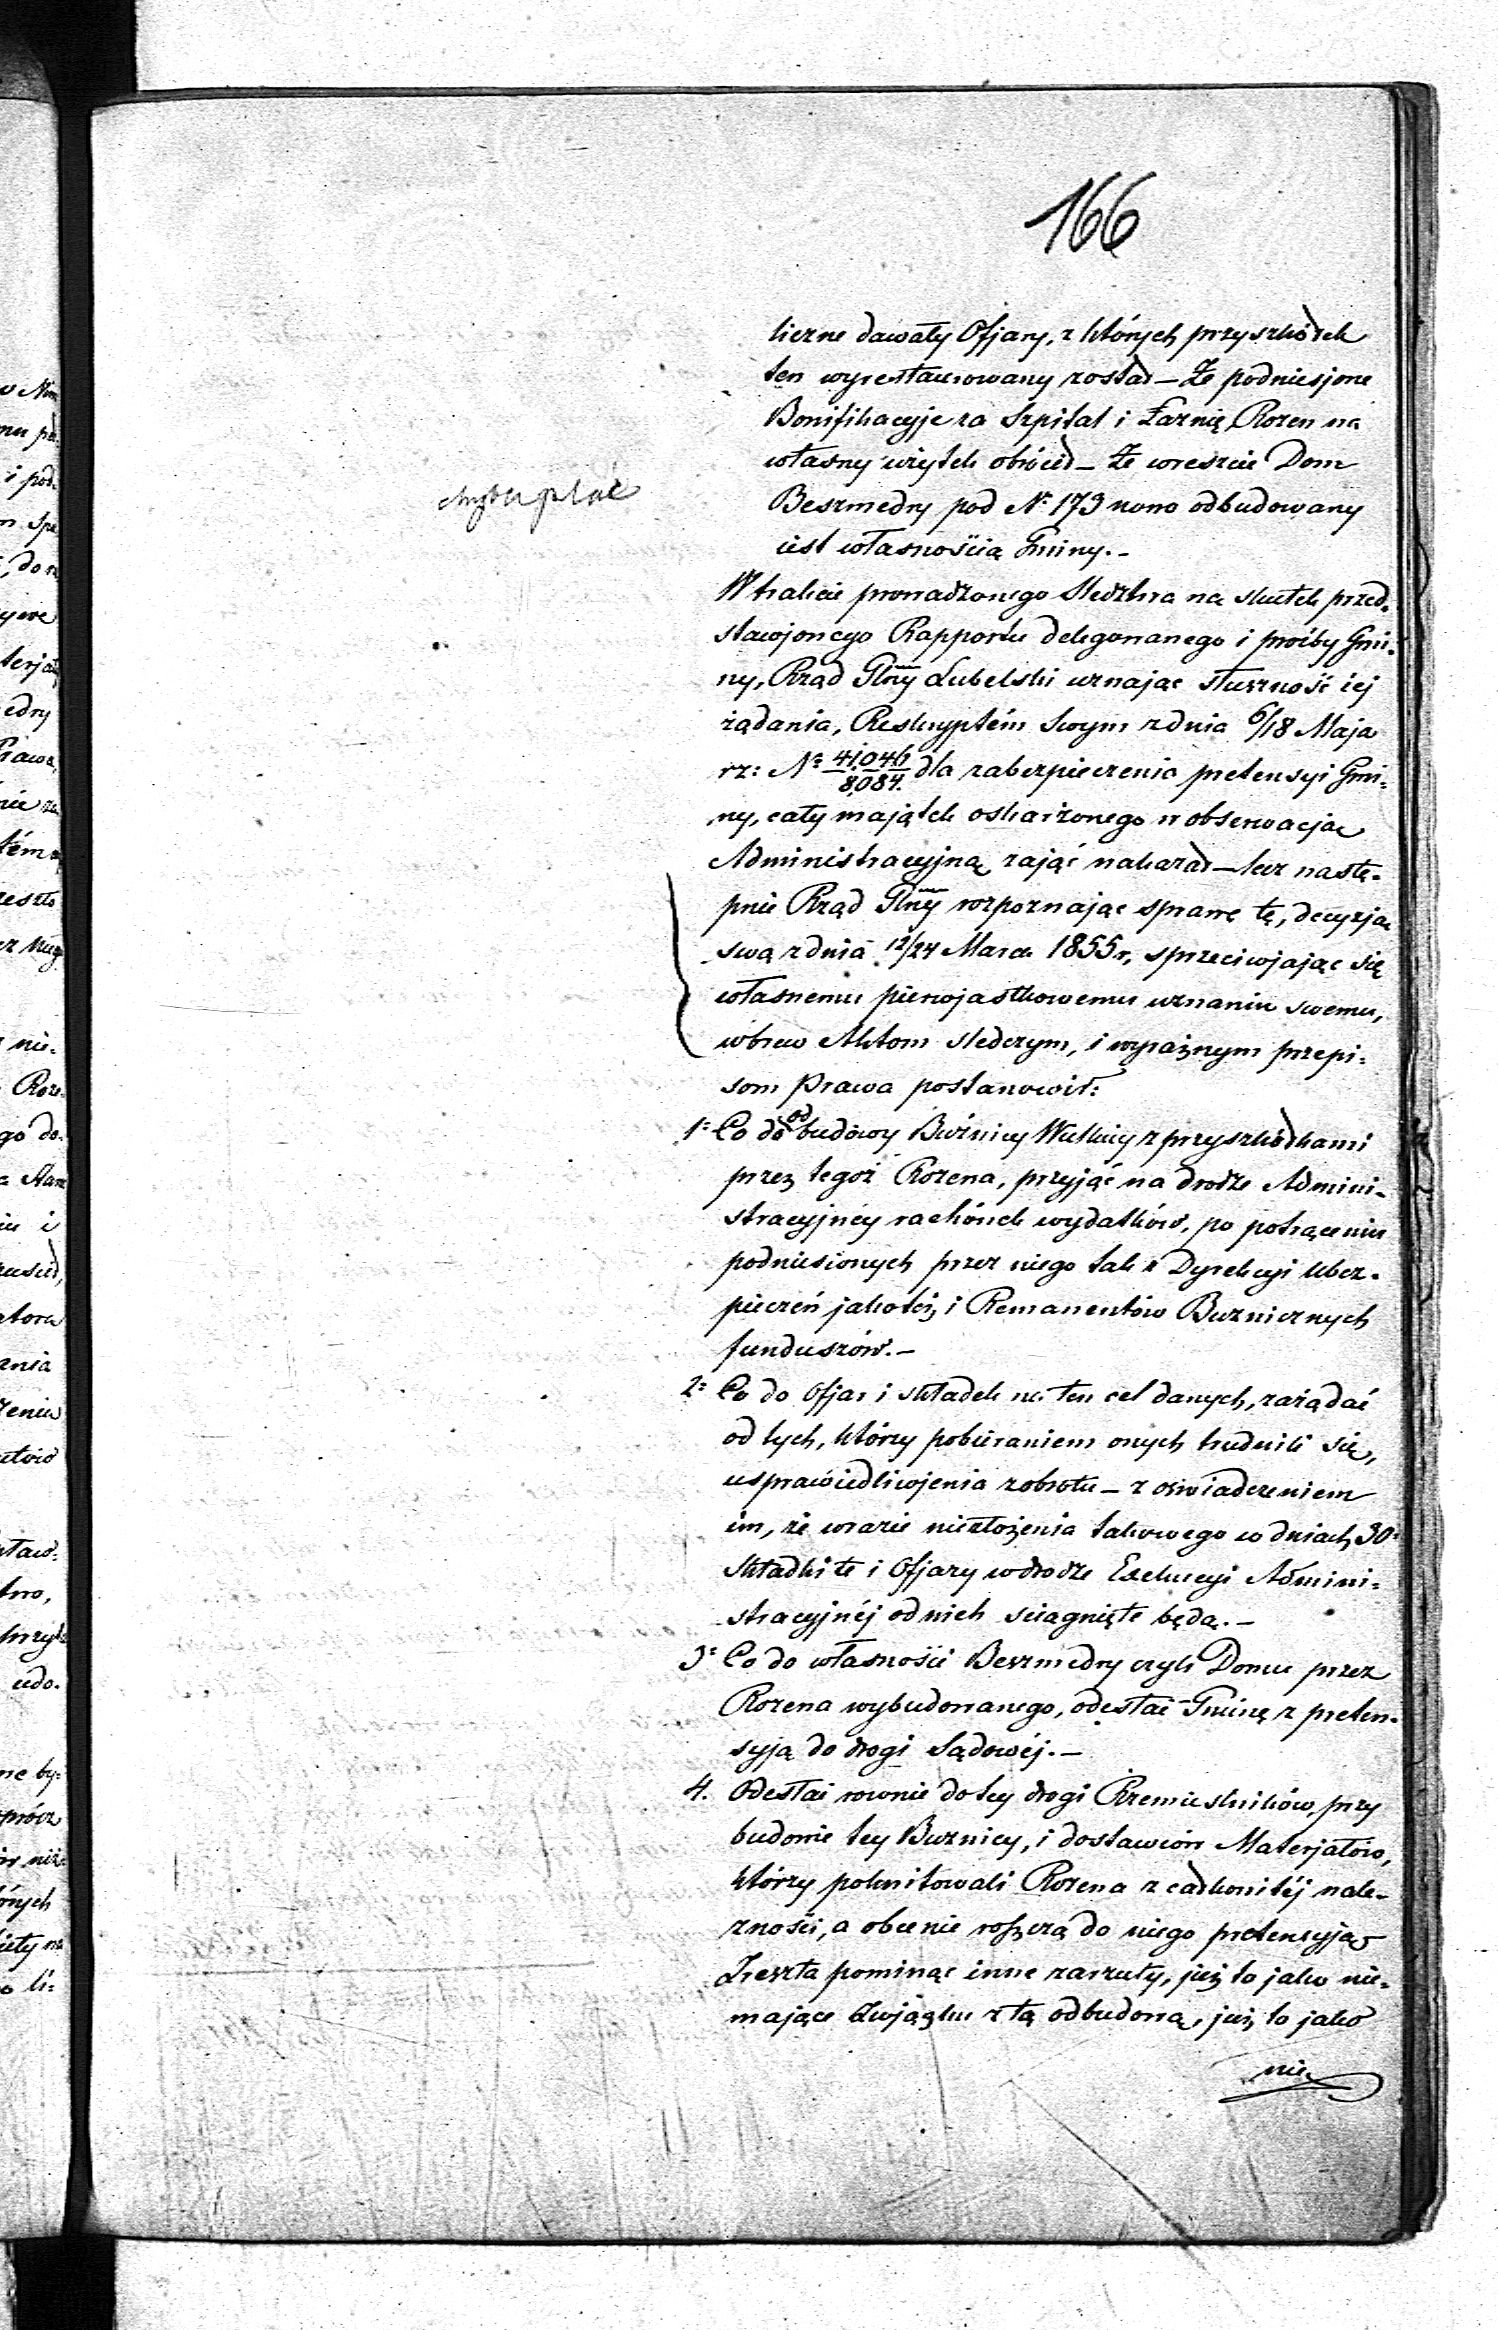 166
liczne dawały Ofjary, z których przyszkółek
ten wyrestaurowany został — Że podniesjone
Bonifikacyje za Szpital i Łaznię Rozen na
własny użytek obrócił — Że wreszcie Dom
Beszmedry pod N<sup>r</sup> 173 nowo odbudowany
iest własnością Gminy. —
W trakcie prowadzonego Sledztwa na skutek przed-
stawjonego Rapportu delegowanego i prośby Gmi-
ny, Rząd Glny Lubelski uznając słuszność iej
żądania, Reskryptém swym z dnia 6/18 Maja
rz: N<sup>o</sup> 41,046/8,084. dla zabezpieczenia pretensyi Gmi-
ny, cały majątek oskarżonego w obserwacją
Administracyjną zająć nakazał — lecz nastę-
pnie Rząd Glny rozpoznając sprawę tę, decyzją
swą z dnia 12/24 Marca 1855 r, sprzeciwjając się
własnemu pierwjastkowemu uznaniu swemu,
wbrew Aktom sledczym, i wyraźnym przepi-
som Prawa postanowił:
1<sup>o</sup> Co do odbudowy Bóźnicy Wielkiey z przyszkółkami
przez tegoż Rozena, przyjąć na drodze Admini-
stracyjnéy rachónek wydatków, po potrąceniu
podniesionych przez niego tak z Dyrekcyi Ubez-
pieczeń jakotéż i Remanentów Buzniczynych
funduszów. —
2<sup>o</sup> Co do Ofjar i składek na ten cel danych, zażądać
od tych, którzy pobieraniem onych trudnili się,
usprawiedliwjenia zobrotu — z oświadczeniem
im, że wrazie niezłożenia takowego w dniach 30<sup>u</sup>
Składki te i Ofjary w drodze Exekucyi Admini-
stracyjnéj od nich sciągnięte będą. —
3<sup>o</sup> Co do własności Beszmedry czyli Domu przez
Rozena wybudowanego, odesłać Gminę z preten-
syją do drogi Sądowéj. —
4. Odesłać rownie do tey drogi Rzemieślników, przy
budowie tey Buznicy, i dostawców Materjałów,
którzy pokwitowali Rozena z całkowitéj nale-
żności, a obecnie roszczą do niego pretensyją —
Zreszta pominąć inne zarzuty, już to jako nie-
mające związku z tą odbudową, już to jako
nie